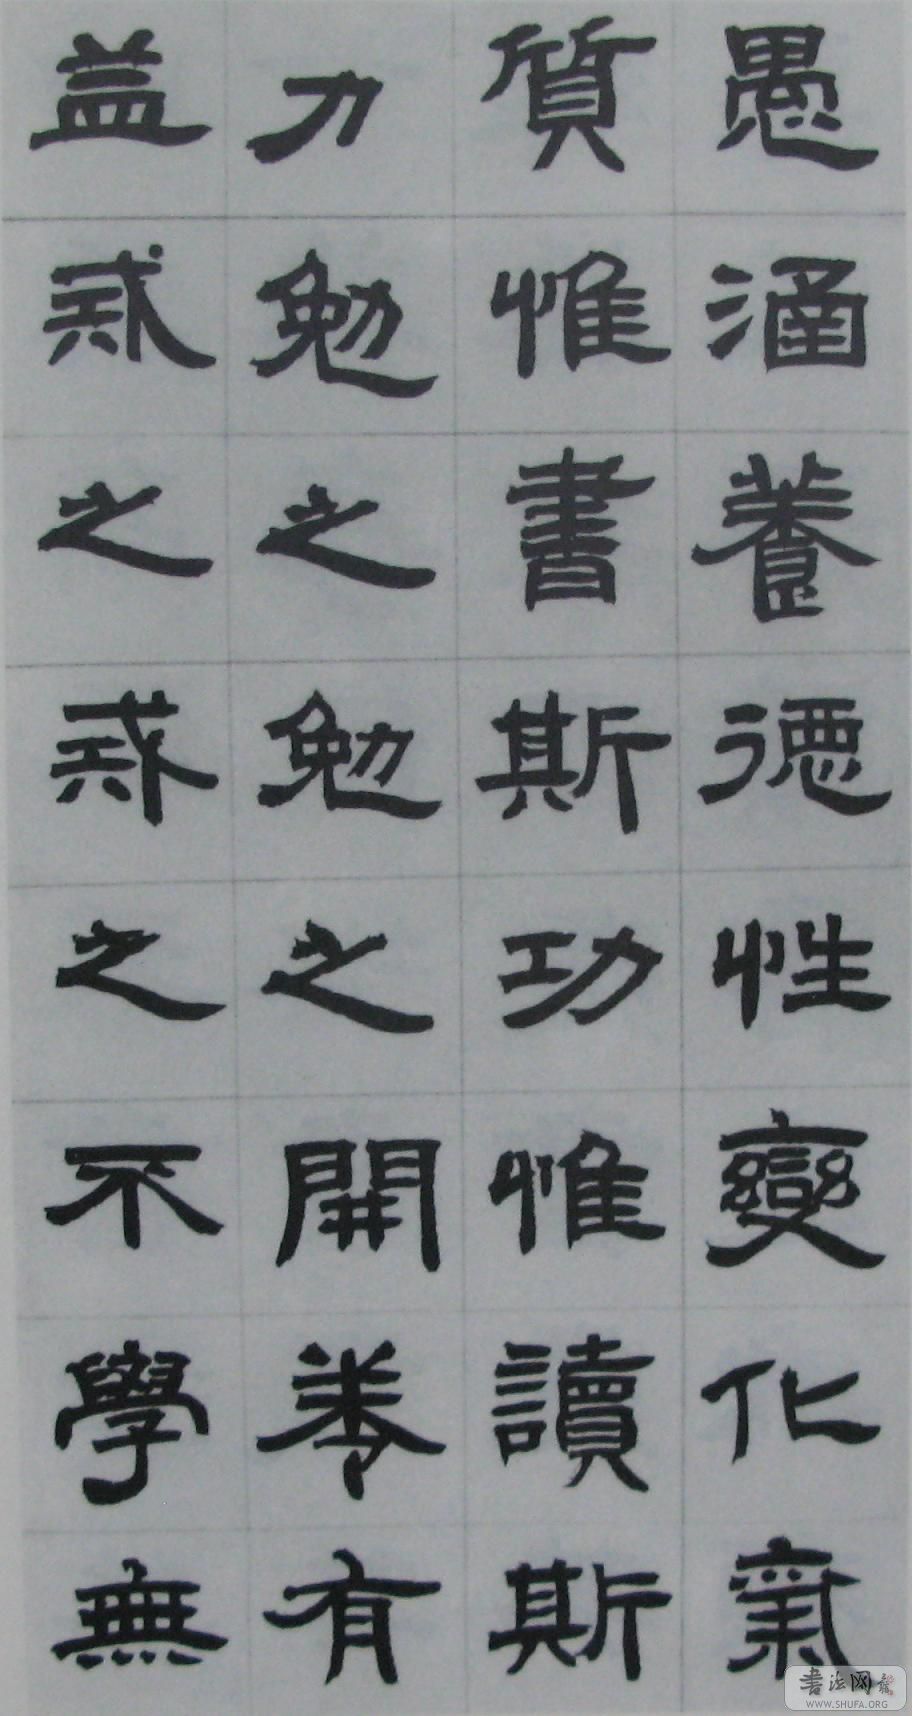 愚涵養德性變化氣
質惟書斯功惟讀斯
力勉之勉之開卷有
益戒之戒之不學無
書法网
WWW.SHUFA.ORG